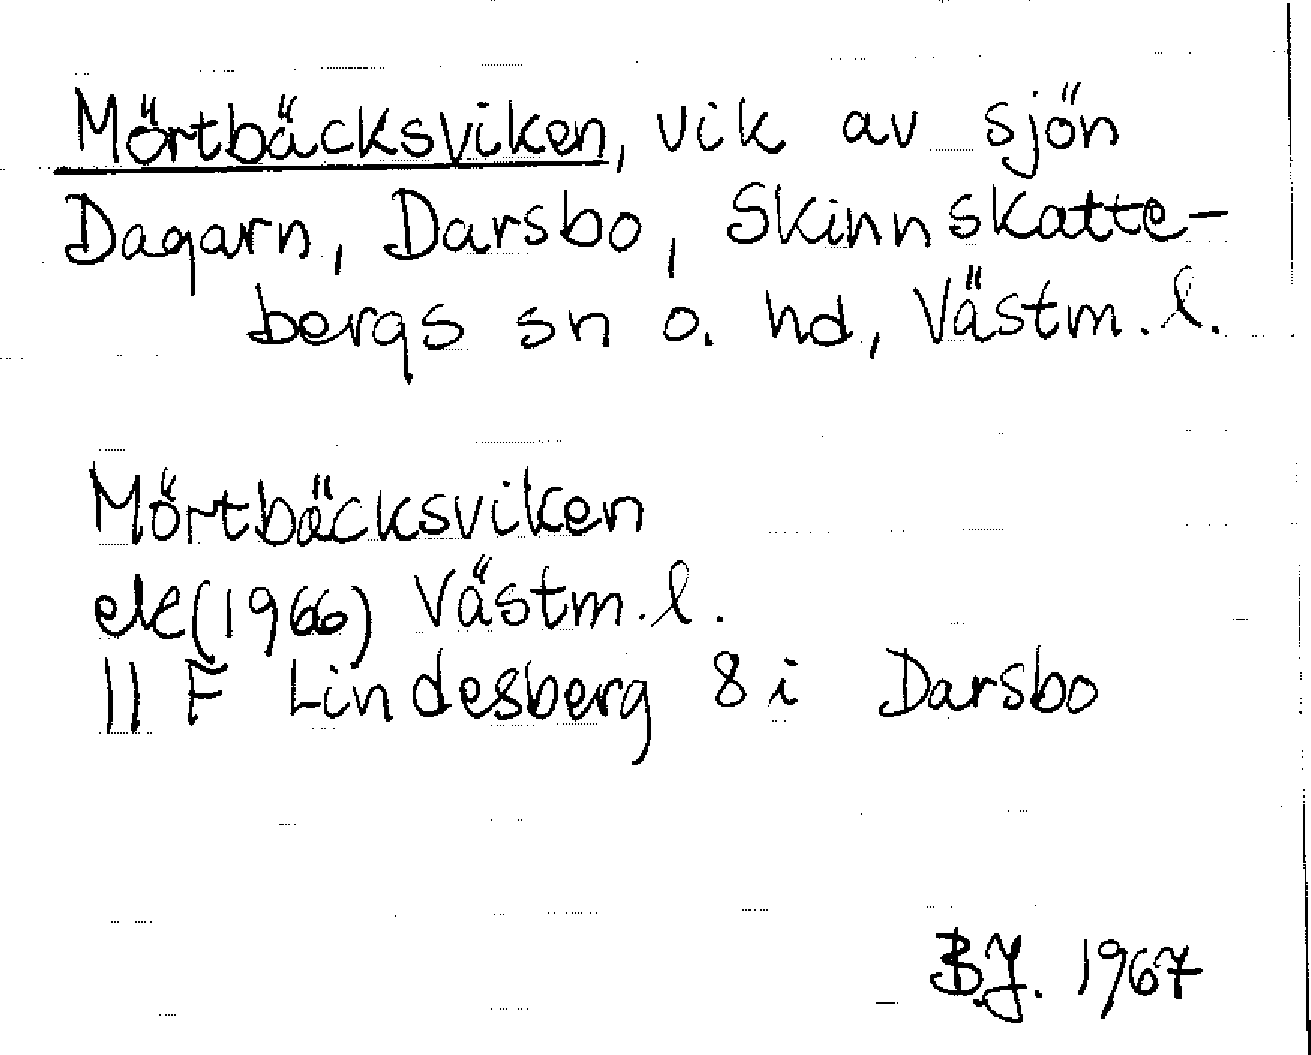 Mörtbäcksviken, vik av sjön
Dagarn, Darsbo, Skinnskatte-
bergs sn o. hd, Västm. l.
Mörtbäcksviken
ek (1966) Västm. l.
11 F Lindesberg 8 i Darsbo
B.J. 1967